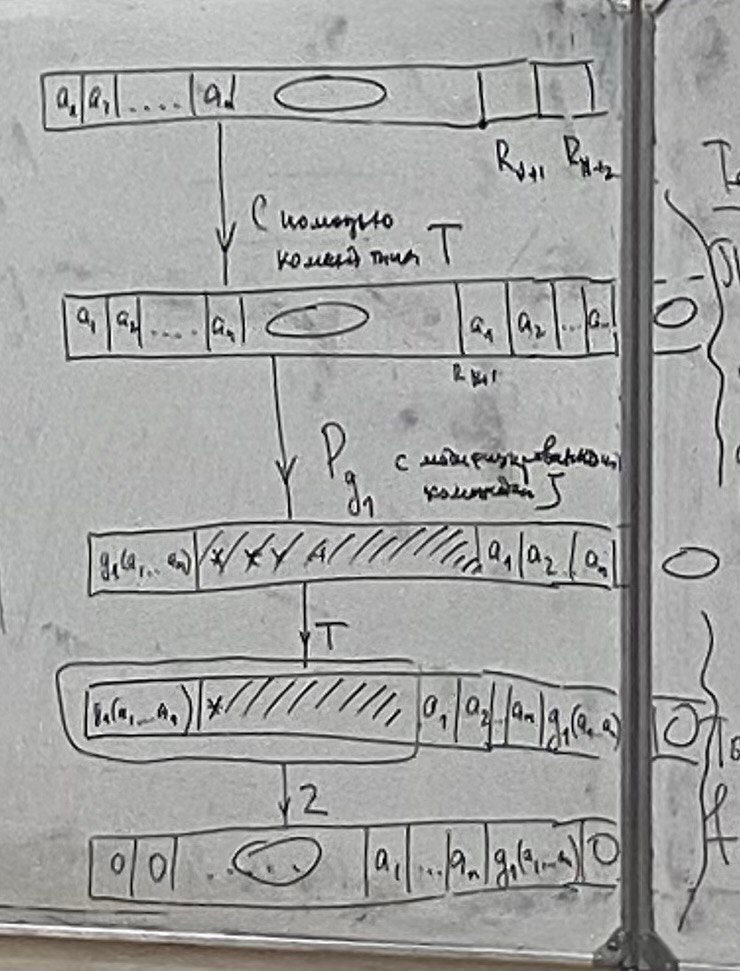 a₁ a₂ .... aₙ 0
R_N+1 R_N+2
С помощью
команд типа T
a₁ a₂ .... aₙ 0 a₁ a₂ ... aₙ 0
R_N+1
P_g₁ с модифицированной
командой J
g₁(a₁...aₙ) a₁ a₂ aₙ 0
T
g₁(a₁...aₙ) a₁ a₂ .. aₙ g₁(a₁..aₙ) 0
Z
0 0 ..... a₁ ... aₙ g₁(a₁...aₙ) 0